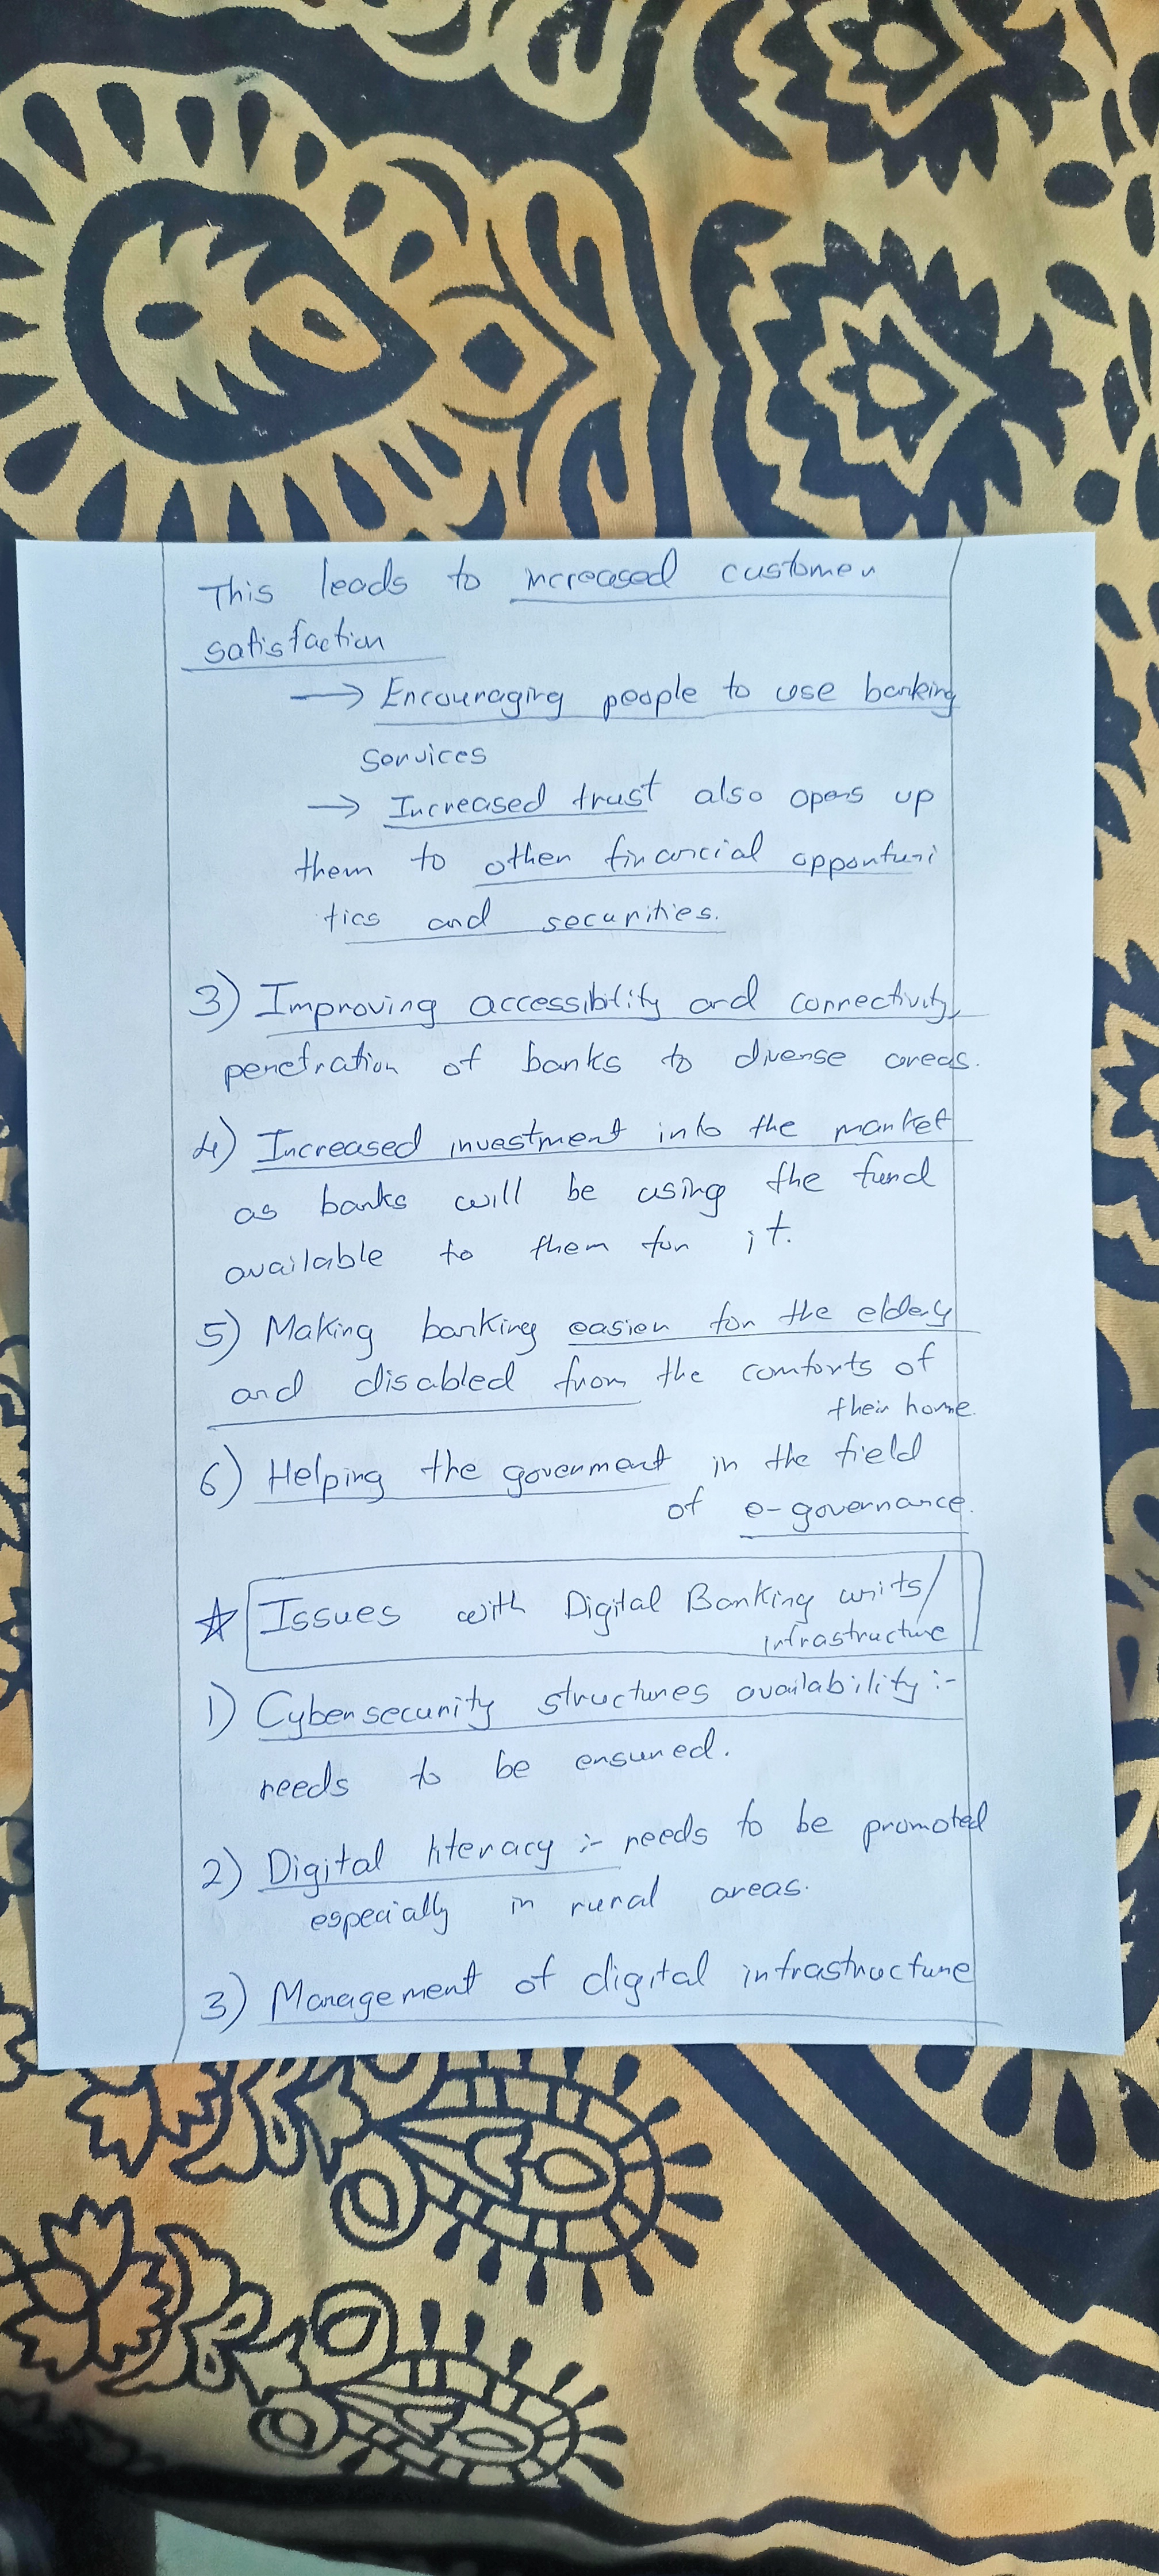 This leads to increased customer
satisfaction
→ Encouraging people to use banking
services
→ Increased trust also opens up
them to other financial opportuni
ties and securities.
3) Improving accessibility and connectivity,
penetration of banks to diverse areas.
4) Increased investment into the market
as banks will be using the fund
available to them for it.
5) Making banking easier for the elderly
and disabled from the comforts of
their home.
6) Helping the government in the field
of e-governance.
☆ Issues with Digital Banking units/
infrastructure
1) Cybersecurity structures availability :-
needs to be ensured.
2) Digital literacy :- needs to be promoted
especially in rural areas.
3) Management of digital infrastructure